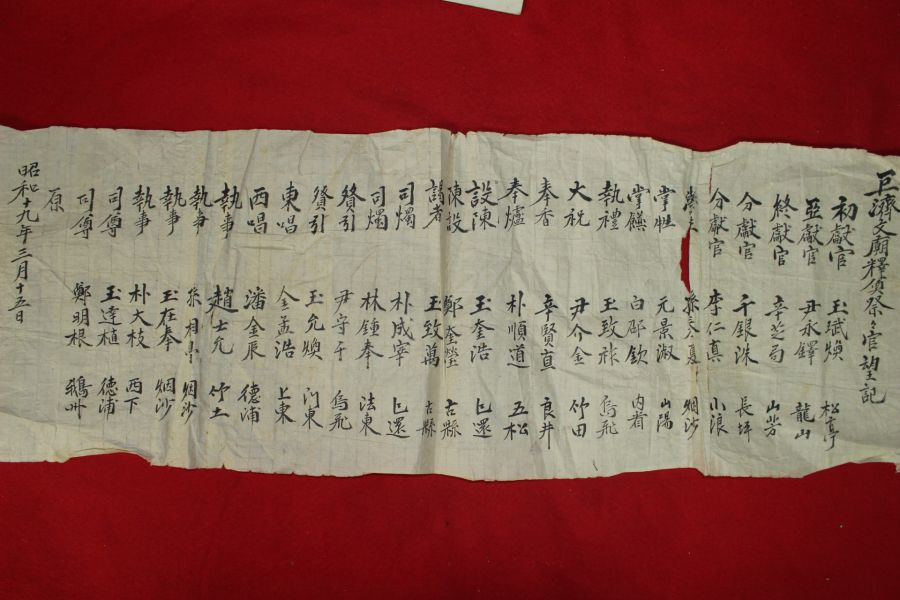 巨濟文廟釋奠祭官望記
初獻官 玉斌煥 松亭
亞獻官 尹永鐸 龍山
終獻官 辛芝局 山芳
分獻官 千銀珠 長坪
分獻官 李仁真 小浪
烟沙
掌牲 元景淑 山陽
掌饌 白 欽 內看
執禮 玉致 烏飛
大祝 尹介金 竹田
奉香 辛賢直 良井
奉爐 朴順道 五松
設陳 玉奎浩 巳還
陳設 鄭奎瑩 古縣
謁者 玉致萬 古縣
司燭 朴成寧 巳還
司燭 林鍾奉 法東
贊引 尹守于 烏飛
贊引 玉允煥 門東
東唱 金孟浩 上東
西唱 潘金辰 德浦
執事 趙士允 竹土
執事 孫相 烟沙
執事 玉在奉 烟沙
執事 朴大枝 西下
司尊 玉達植 德浦
司尊 鄭明根 鵝州
原
昭和十九年三月十五日